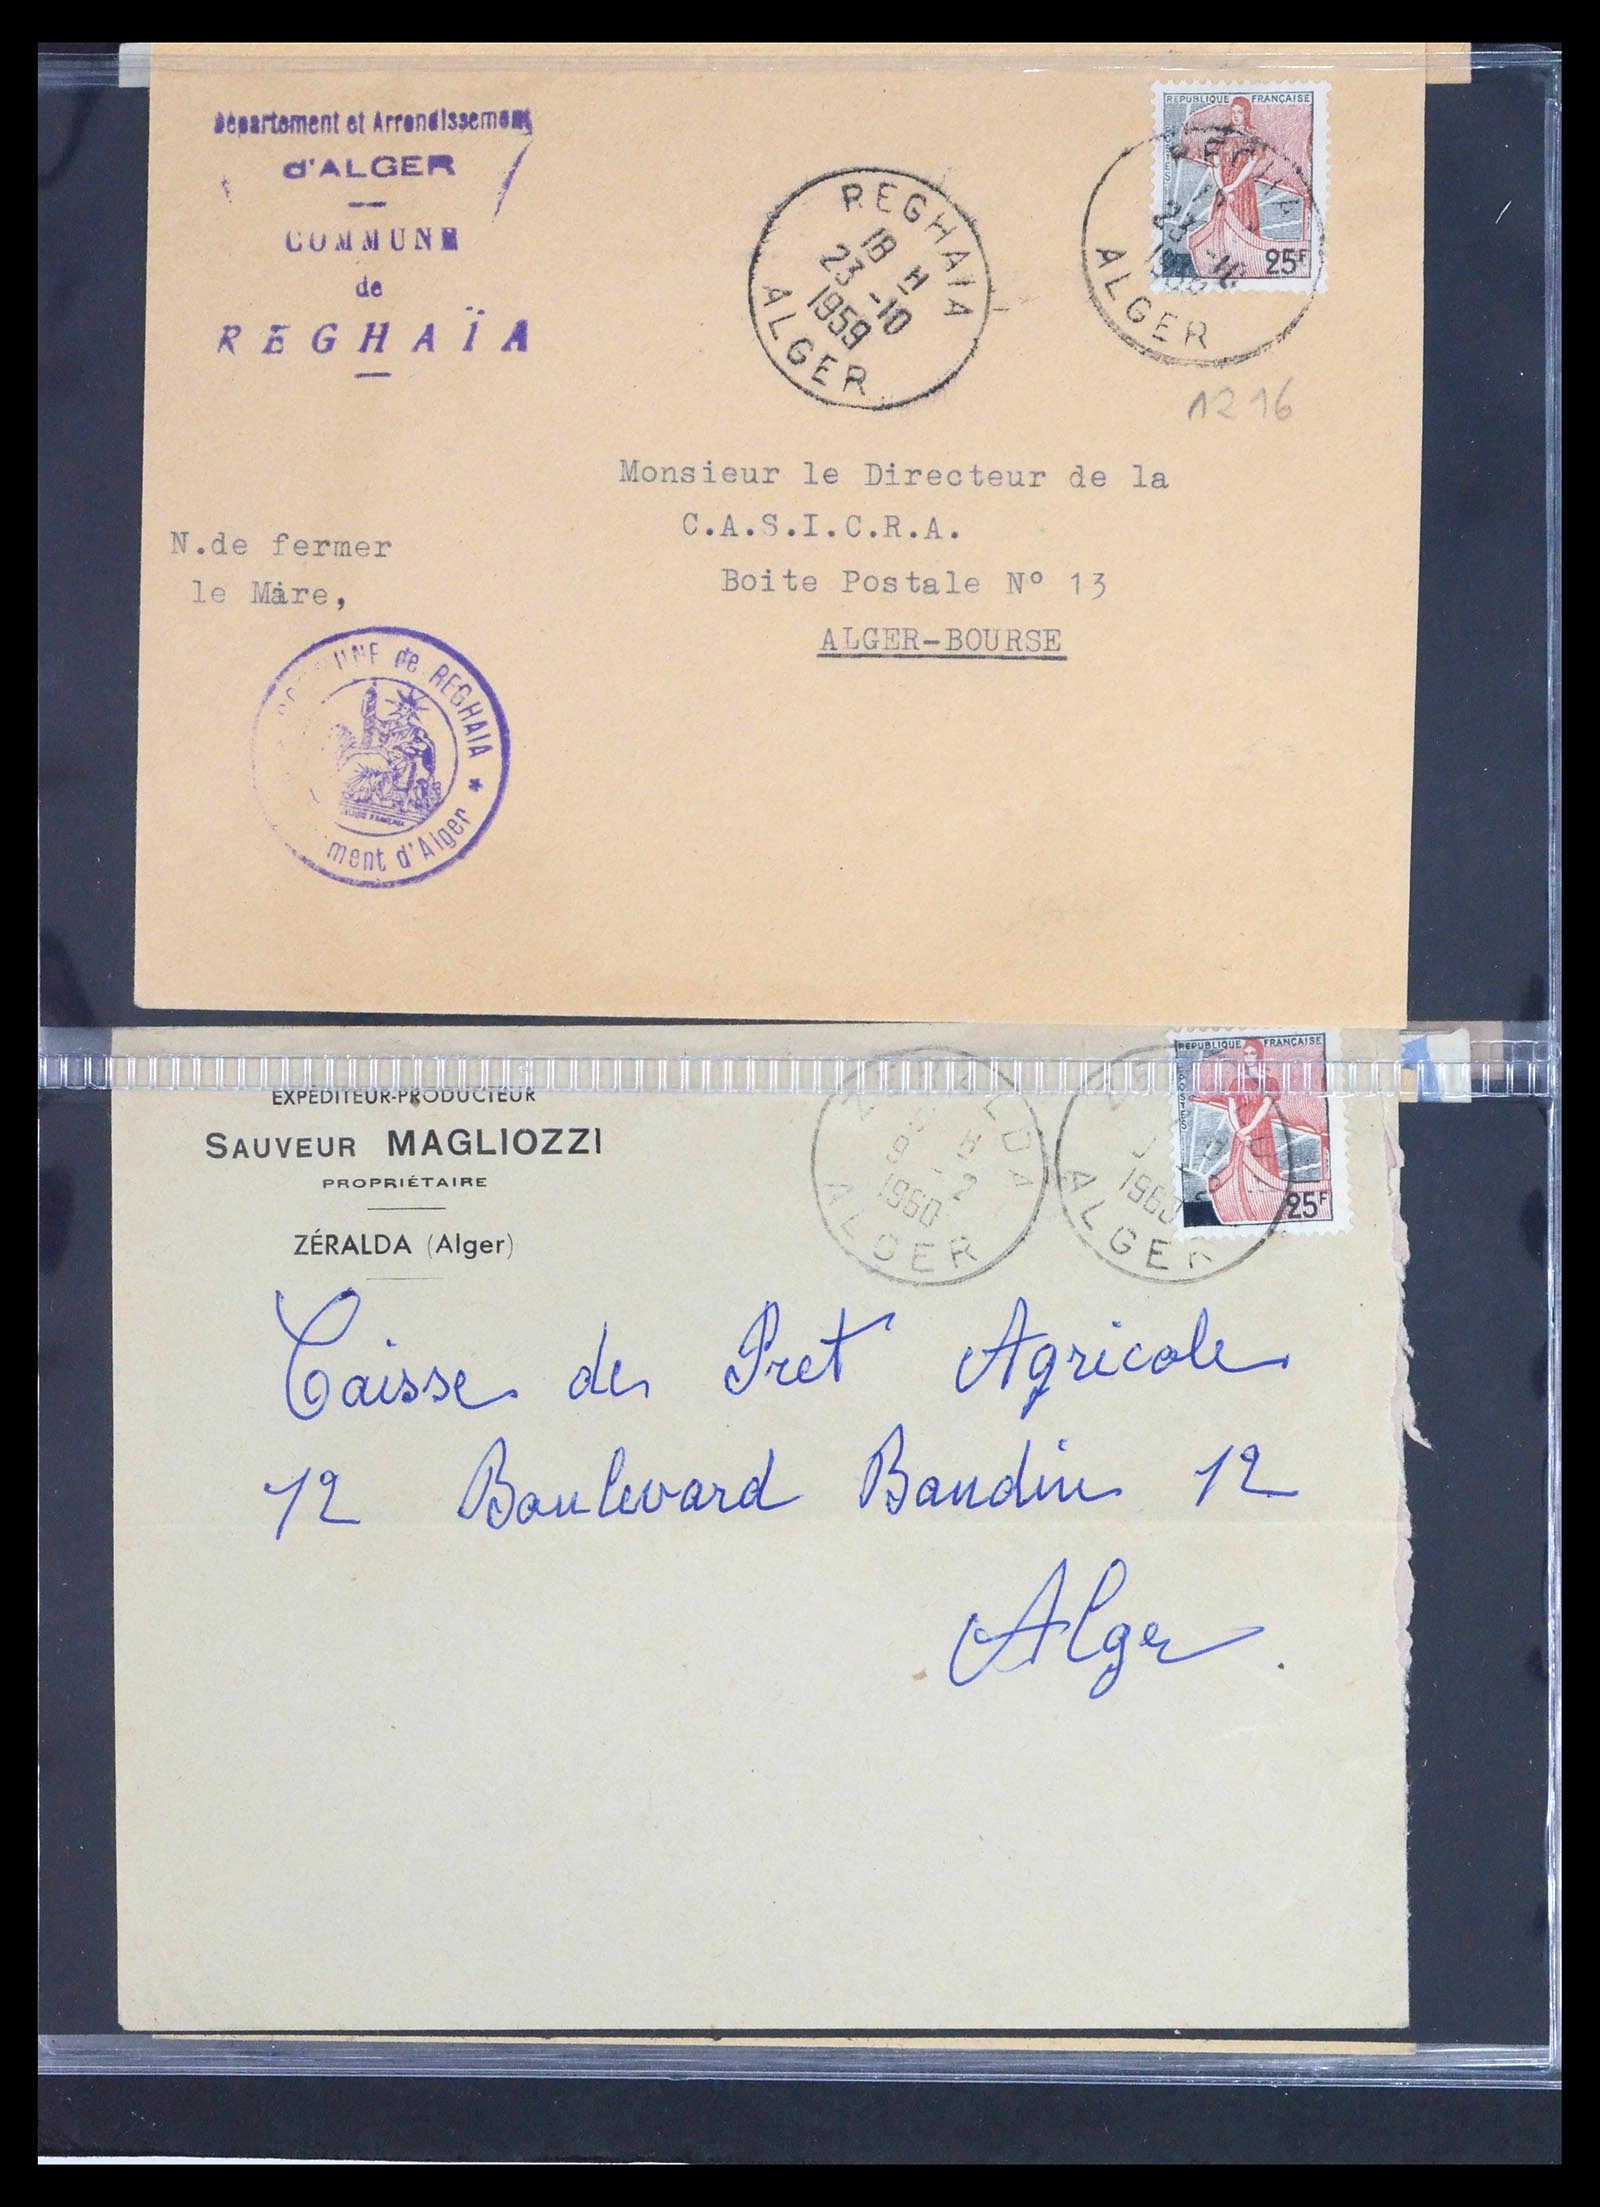 Département et Arrondissement
d'ALGER
COMMUNE
de
REGHAÏA
REGHAIA
18 H
23 -10
1959
ALGER
REPUBLIQUE FRANÇAISE
POSTES
25F
ALGER
1216
Monsieur le Directeur de la
C.A.S.I.C.R.A.
Boite Postale Nº 13
ALGER-BOURSE
N.de fermer
le Maire,
de REGHAIA *
ment d'Alger
EXPÉDITEUR-PRODUCTEUR
SAUVEUR MAGLIOZZI
PROPRIÉTAIRE
ZÉRALDA (Alger)
ZERALDA
9 -2
1960
ALGER
1960
ALGER
REPUBLIQUE FRANÇAISE
POSTES
25F
Caisse de Pret Agricole
12 Boulevard Baudin 12
Alger.